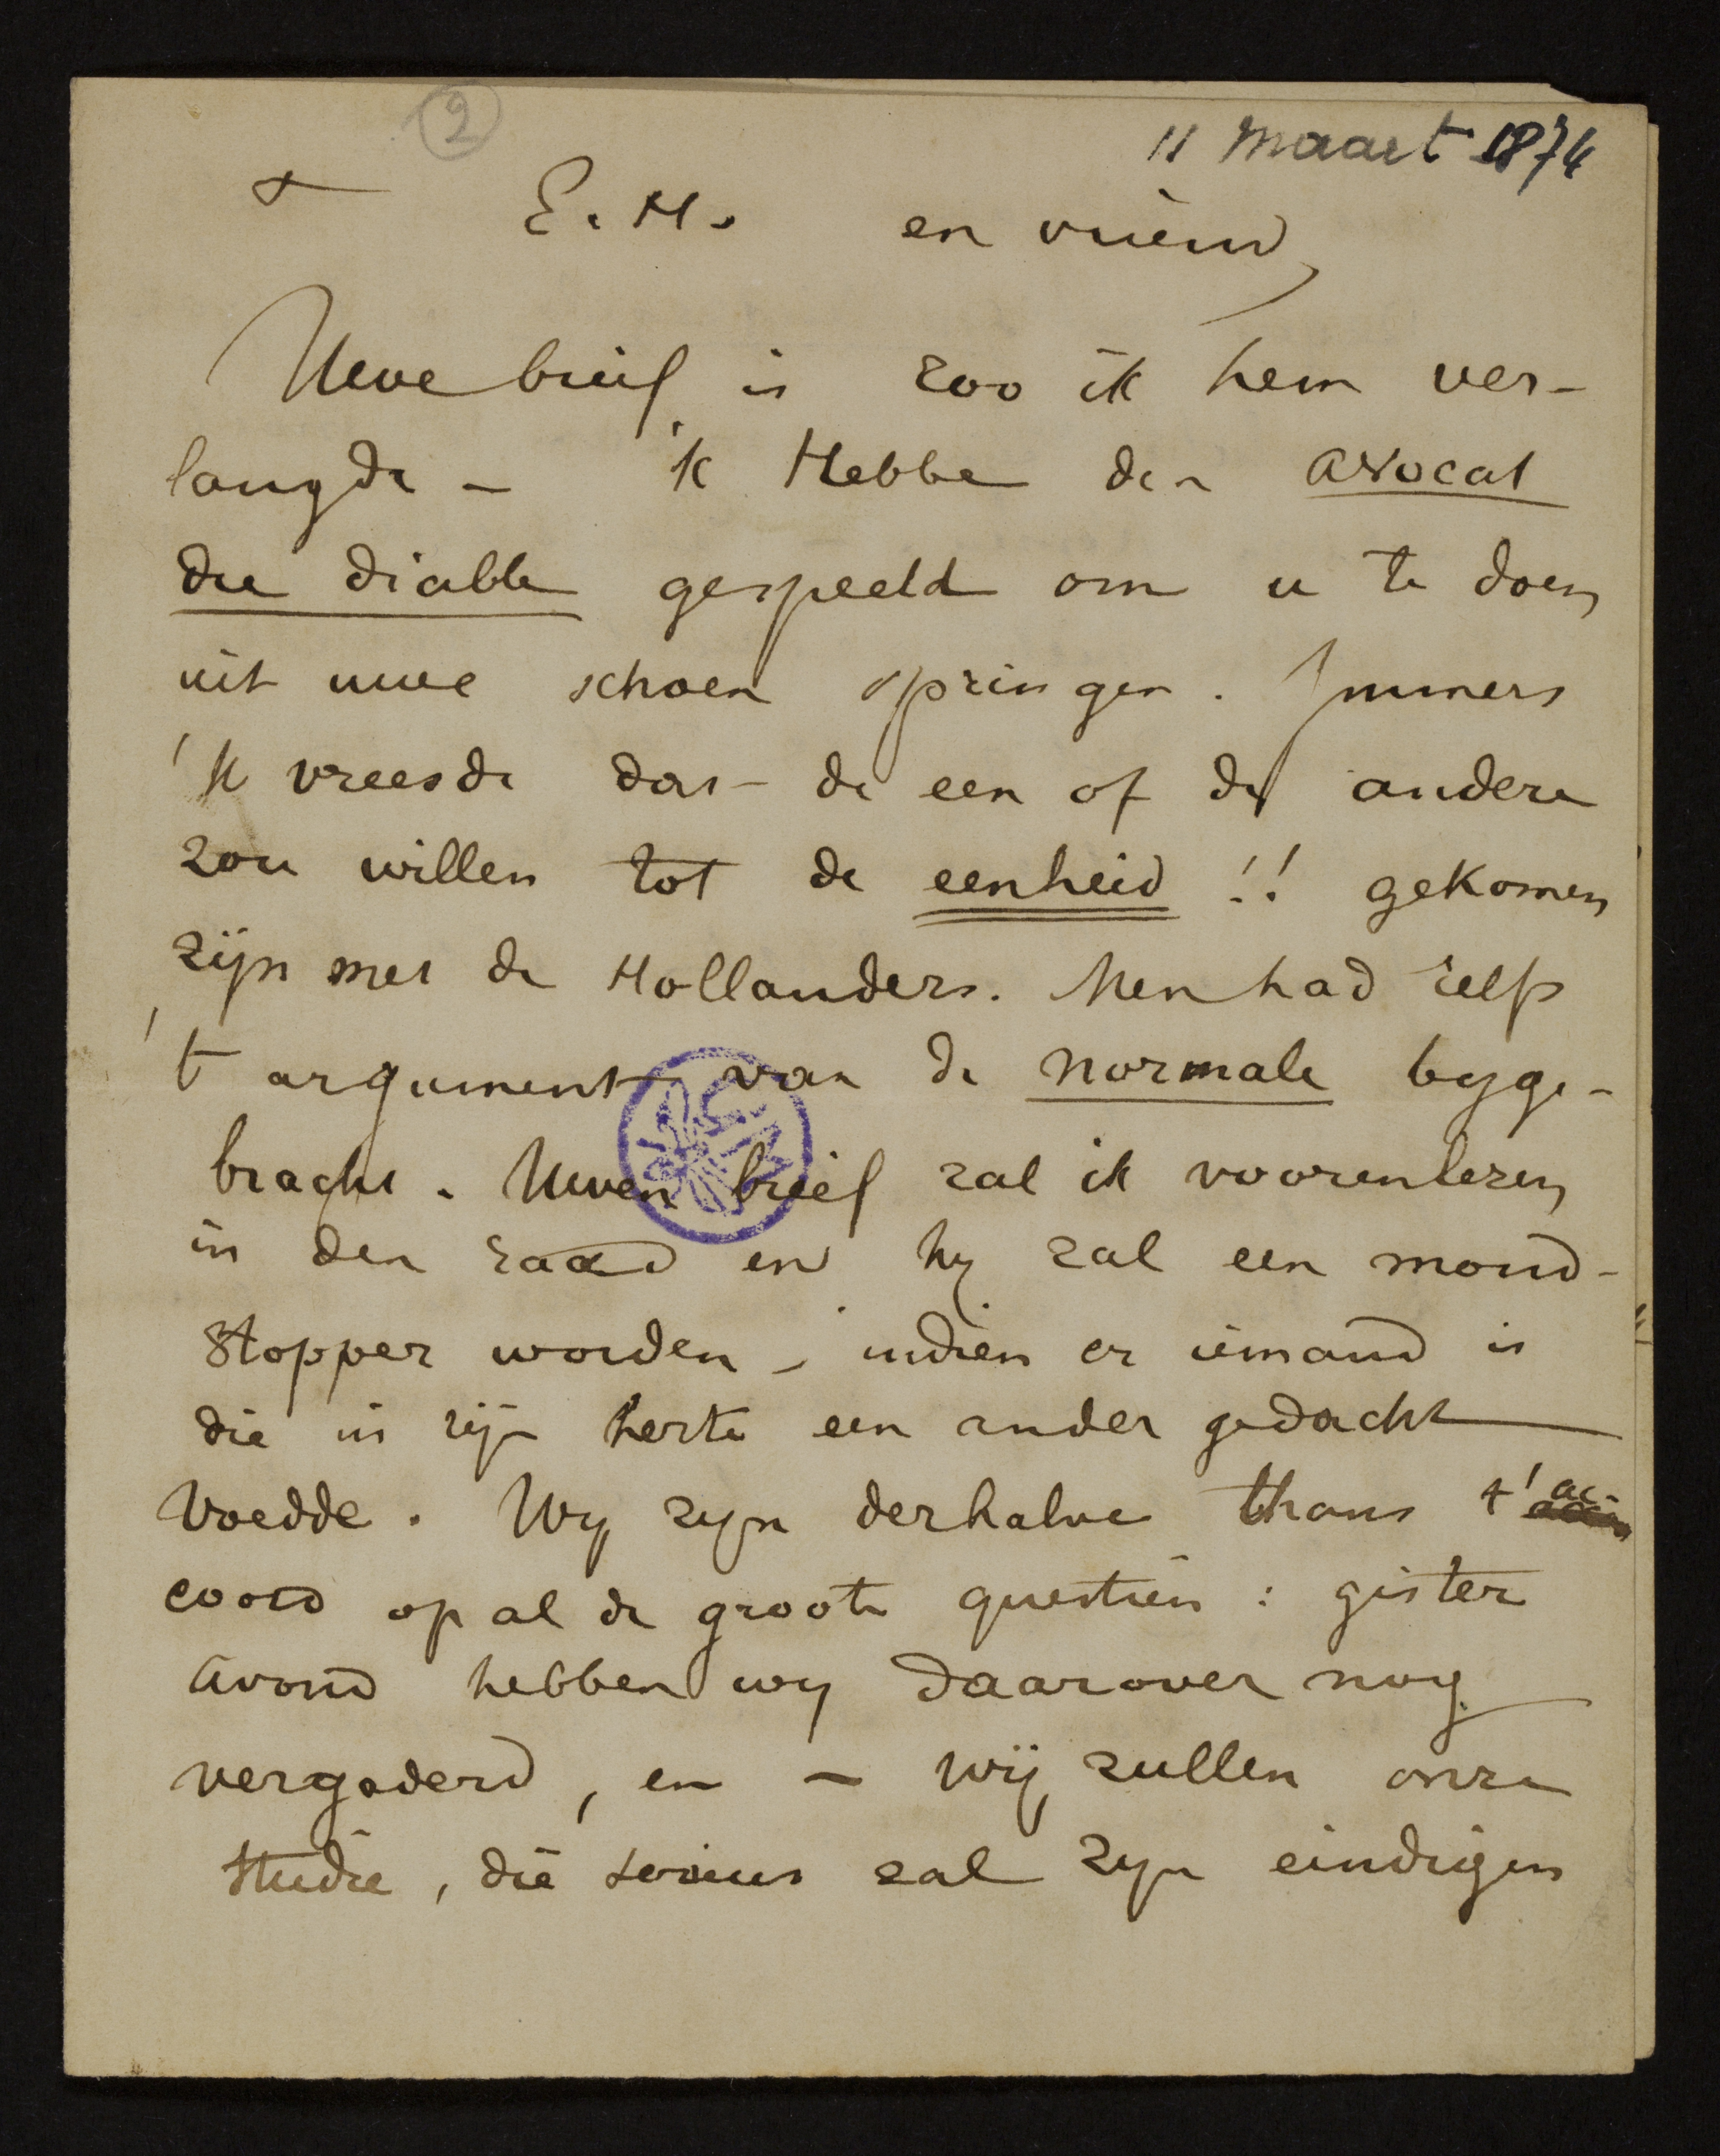 2
11 Maart 1874
E. H. en vriend,
Uwe brief is zoo ik hem ver-
langde - 'k Hebbe den avocat
du diable gespeeld om u te doen
uit uwe schoen springen. Immers
'k vreesde dat de een of de andere
zou willen tot de eenheid !! gekomen
zijn met de Hollanders. Men had zelfs
't argument van de normale byge-
bracht. Uwen brief zal ik voorenlezen
in den raad en hy zal een mond-
stopper worden, indien er iemand is
die in zijn herte een ander gedacht
voedde. Wy zyn derhalve thans t' ac-
coord op al de groote questien : gister
avond hebben wy daarover nog
vergaderd, en - wij zullen onze
studie, die serieus zal zyn eindigen